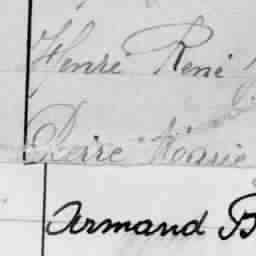 Henri René
Pierre Marie
Armand B